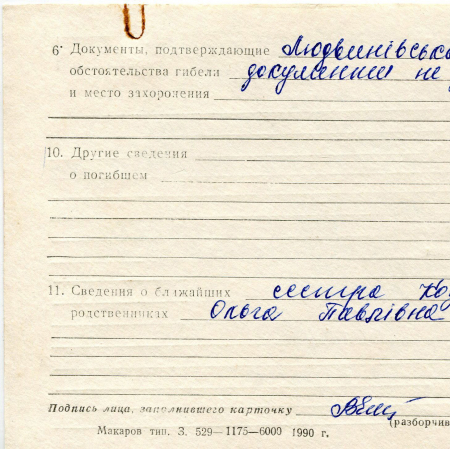 6· Документы, подтверждающие Людвинівсько
обстоятельства гибели документи не
и место захоронения
10. Другие сведения
о погибшем
11. Сведения о ближайших сестра
родственниках Ольга Павлівна
Подпись лица, заполнившего карточку
(разборчив
Макаров тип. З. 529—1175—6000 1990 г.